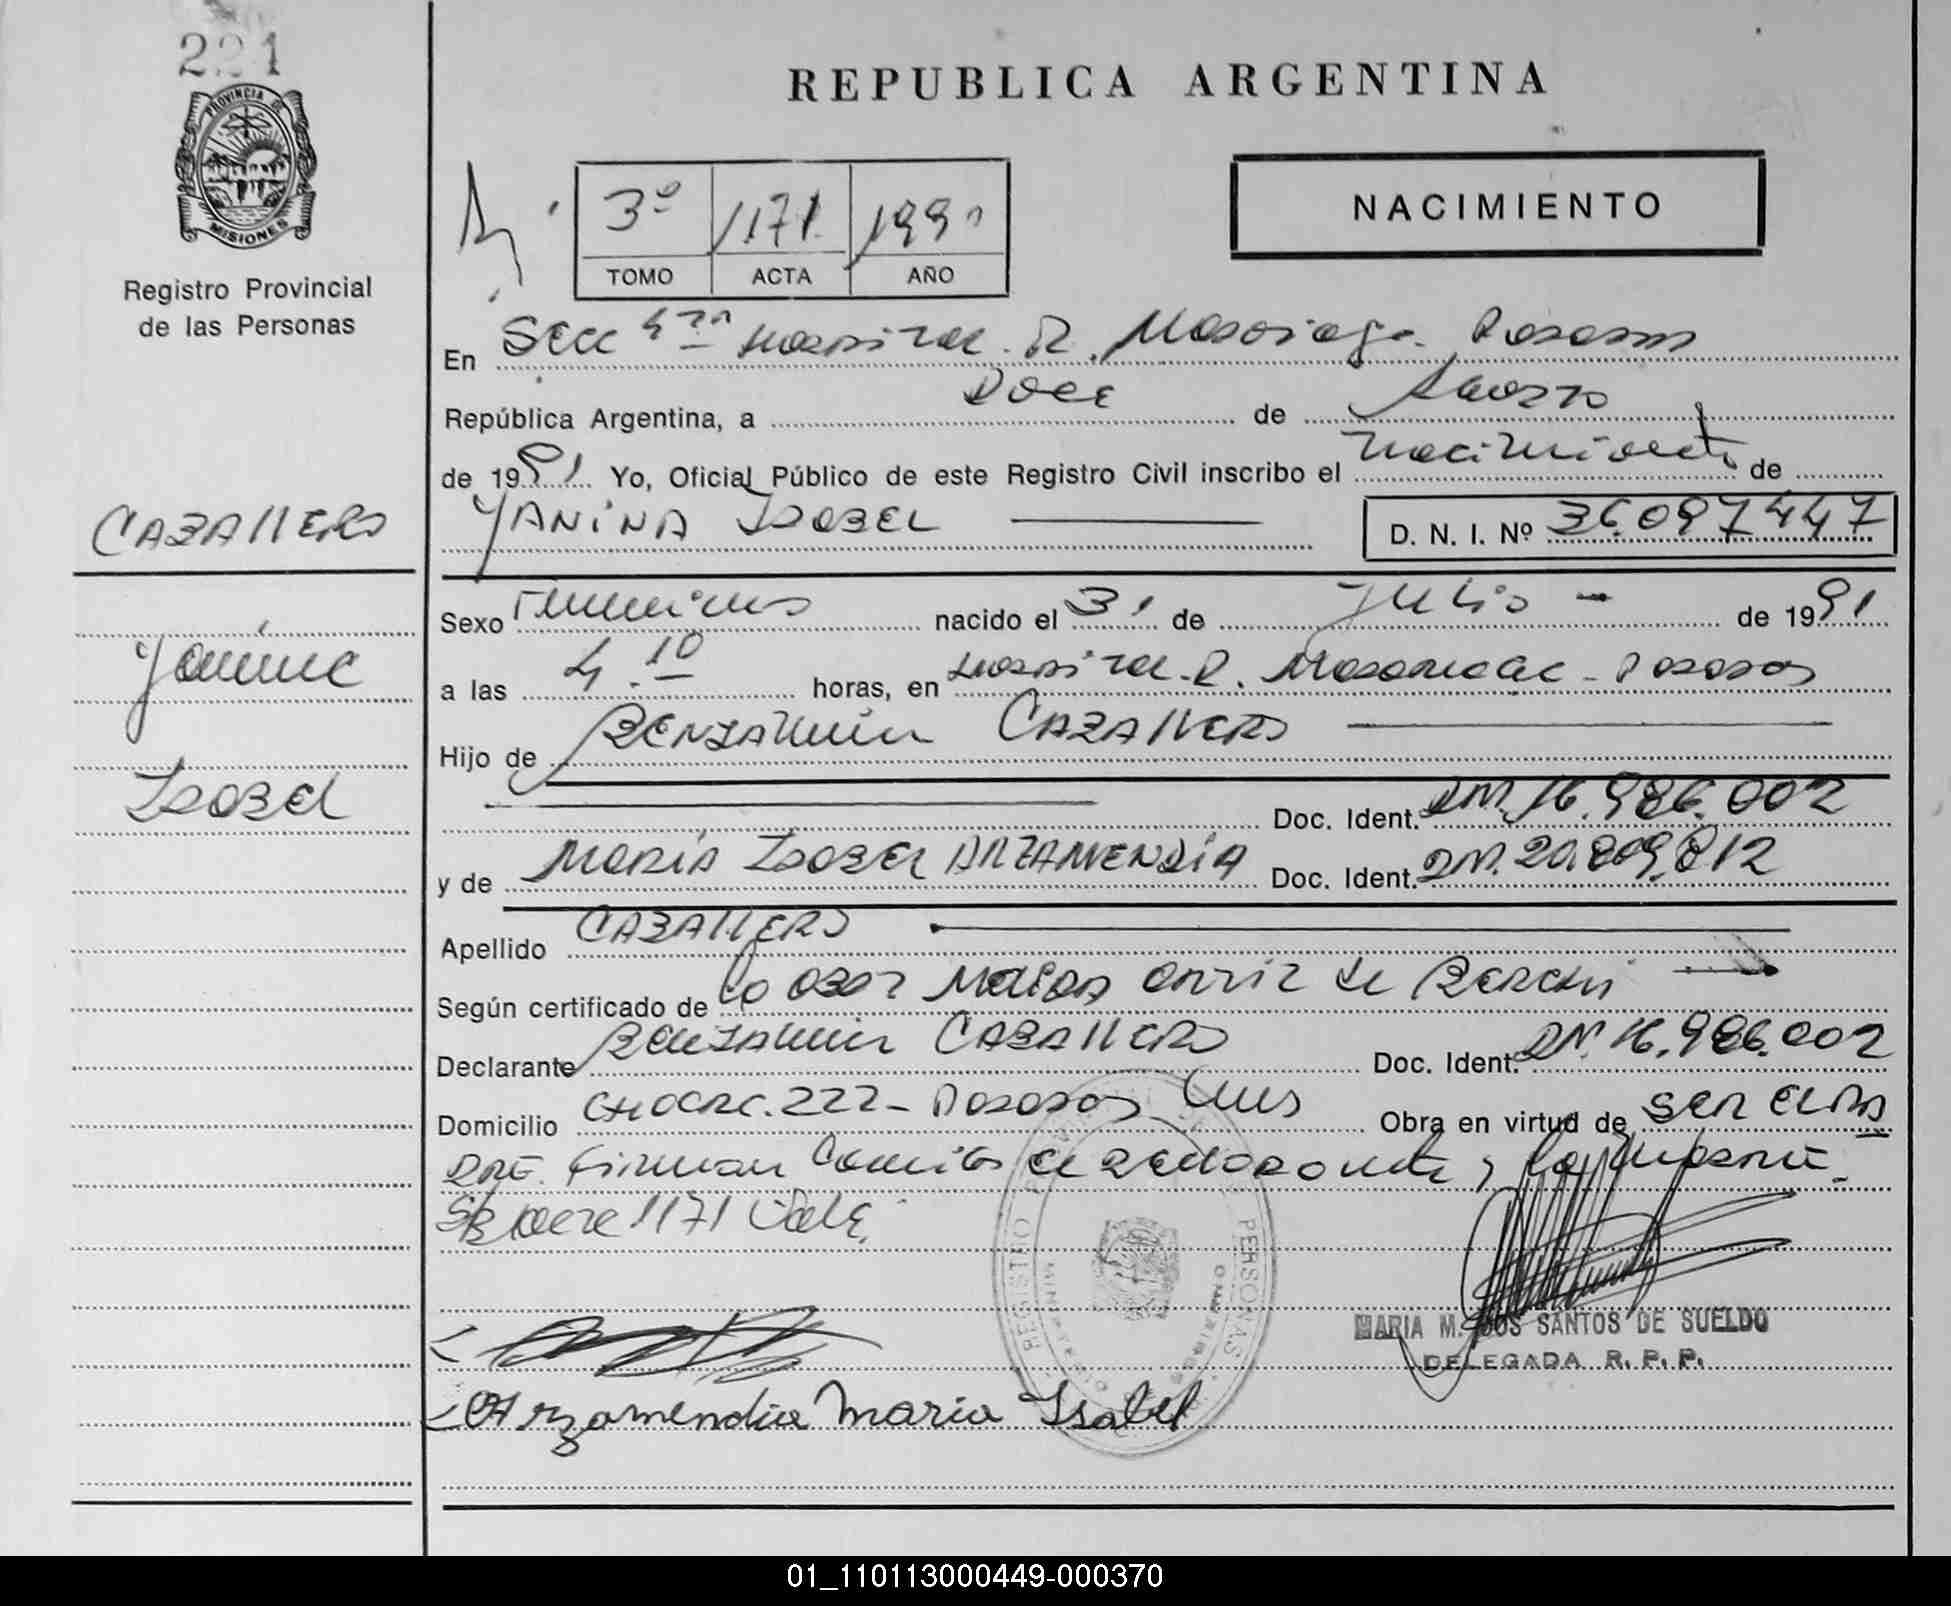 221
PROVINCIA DE
MISIONES
Registro Provincial
de las Personas
CABALLERO
Yanina
Isabel
REPUBLICA ARGENTINA
3º 1171 199
TOMO ACTA AÑO
NACIMIENTO
En Secc 4ta Hospital R. Madariaga Posadas
República Argentina, a Doce de Agosto
de 1991 Yo, Oficial Público de este Registro Civil inscribo el nacimiento de
YANINA ISABEL D. N. I. Nº 36.097447
Sexo Femenino nacido el 31 de Julio de 1991
a las 4.10 horas, en Hospital R. Madariaga - Posadas
Hijo de BENJAMIN CABALLERO
Doc. Ident. DNI. 16.986.002
y de MARIA ISABEL ARZAMENDIA Doc. Ident. DNI. 20.809.812
Apellido CABALLERO
Según certificado de la obst Ortiz de
Declarante BENJAMIN CABALLERO Doc. Ident. DNI. 16.986.002
Domicilio 222 - Posadas Obra en virtud de ser el
Firman la
1171 Vale.
REGISTRO PROVINCIAL DE LAS PERSONAS
MINISTERIO DE GOBIERNO
MARIA M. DOS SANTOS DE SUELDO
DELEGADA R. P. P.
Arzamendia Maria Isabel
01_110113000449-000370